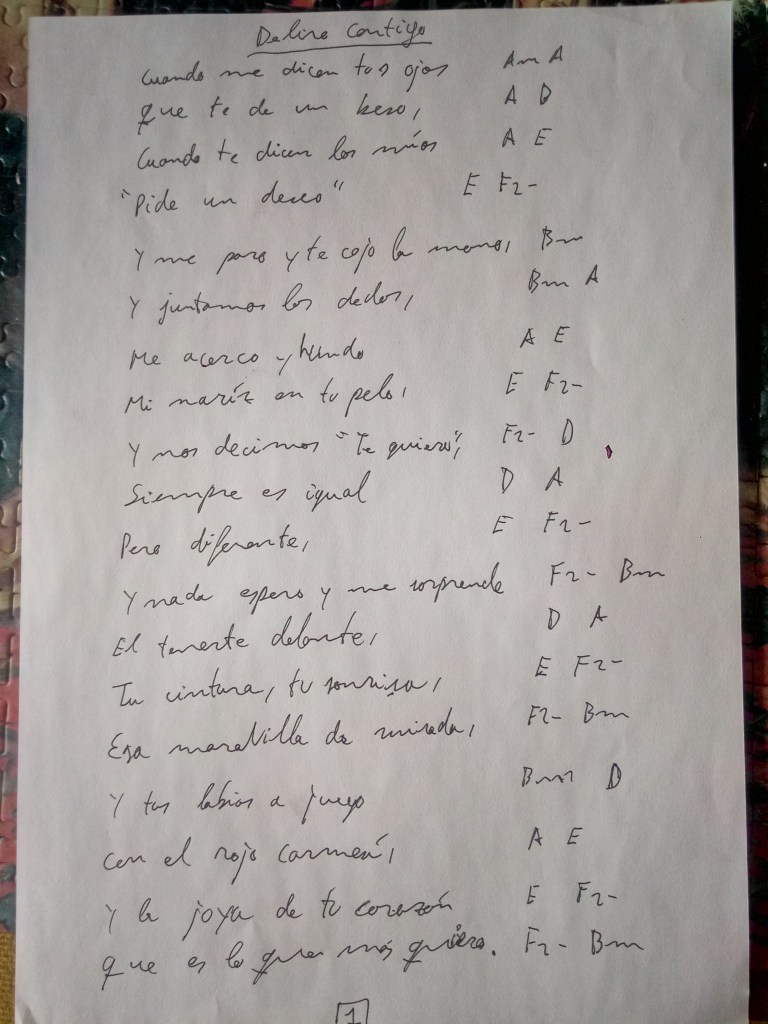 Deliro Contigo
Cuando me dicen tus ojos Am A
que te de un beso, A D
Cuando te dicen los míos A E
"Pide un deseo" E F2-
Y me paro y te cojo la mano, Bm
Y juntamos los dedos, Bm A
Me acerco y hundo A E
Mi naríz en tu pelo, E F2-
Y nos decimos "Te quiero", F2- D
Siempre es igual D A
Pero diferente, E F2-
Y nada espero y me sorprende F2- Bm
El tenerte delante, D A
Tu cintura, tu sonrisa, E F2-
Esa maravilla de mirada, F2- Bm
Y tus labios a juego Bm D
con el rojo carmesí, A E
Y la joya de tu corazón E F2-
que es lo que más quiero. F2- Bm
1